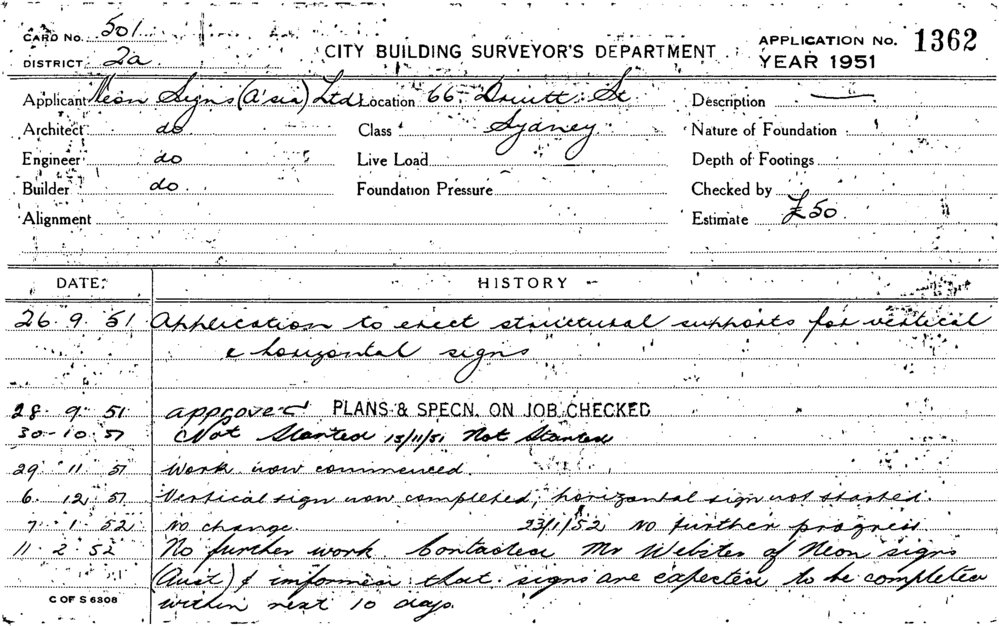 CARD No. 501
DISTRICT 2a
CITY BUILDING SURVEYOR'S DEPARTMENT
APPLICATION No. 1362
YEAR 1951
Applicant Neon Signs (A'sia) Ltd Location 66 Druitt St Description —
Architect do Class Sydney Nature of Foundation
Engineer do Live Load Depth of Footings
Builder do Foundation Pressure Checked by
Alignment Estimate £50
DATE HISTORY
26 . 9 . 51 Application to erect structural supports for vertical
& horizontal signs
28 . 9 . 51 approved PLANS & SPECN. ON JOB CHECKED
30-10.51 Not Started 15/11/51 Not Started
29 11 51 Work now commenced.
6. 12 51 Vertical sign now completed, horizontal sign not started.
7 . 1 . 52 No change. 23/1/52 No further progress
11 . 2 . 52 No further work Contacted Mr Webster of Neon signs
(Aust) & informed that signs are expected to be completed
within next 10 days.
C OF S 6308